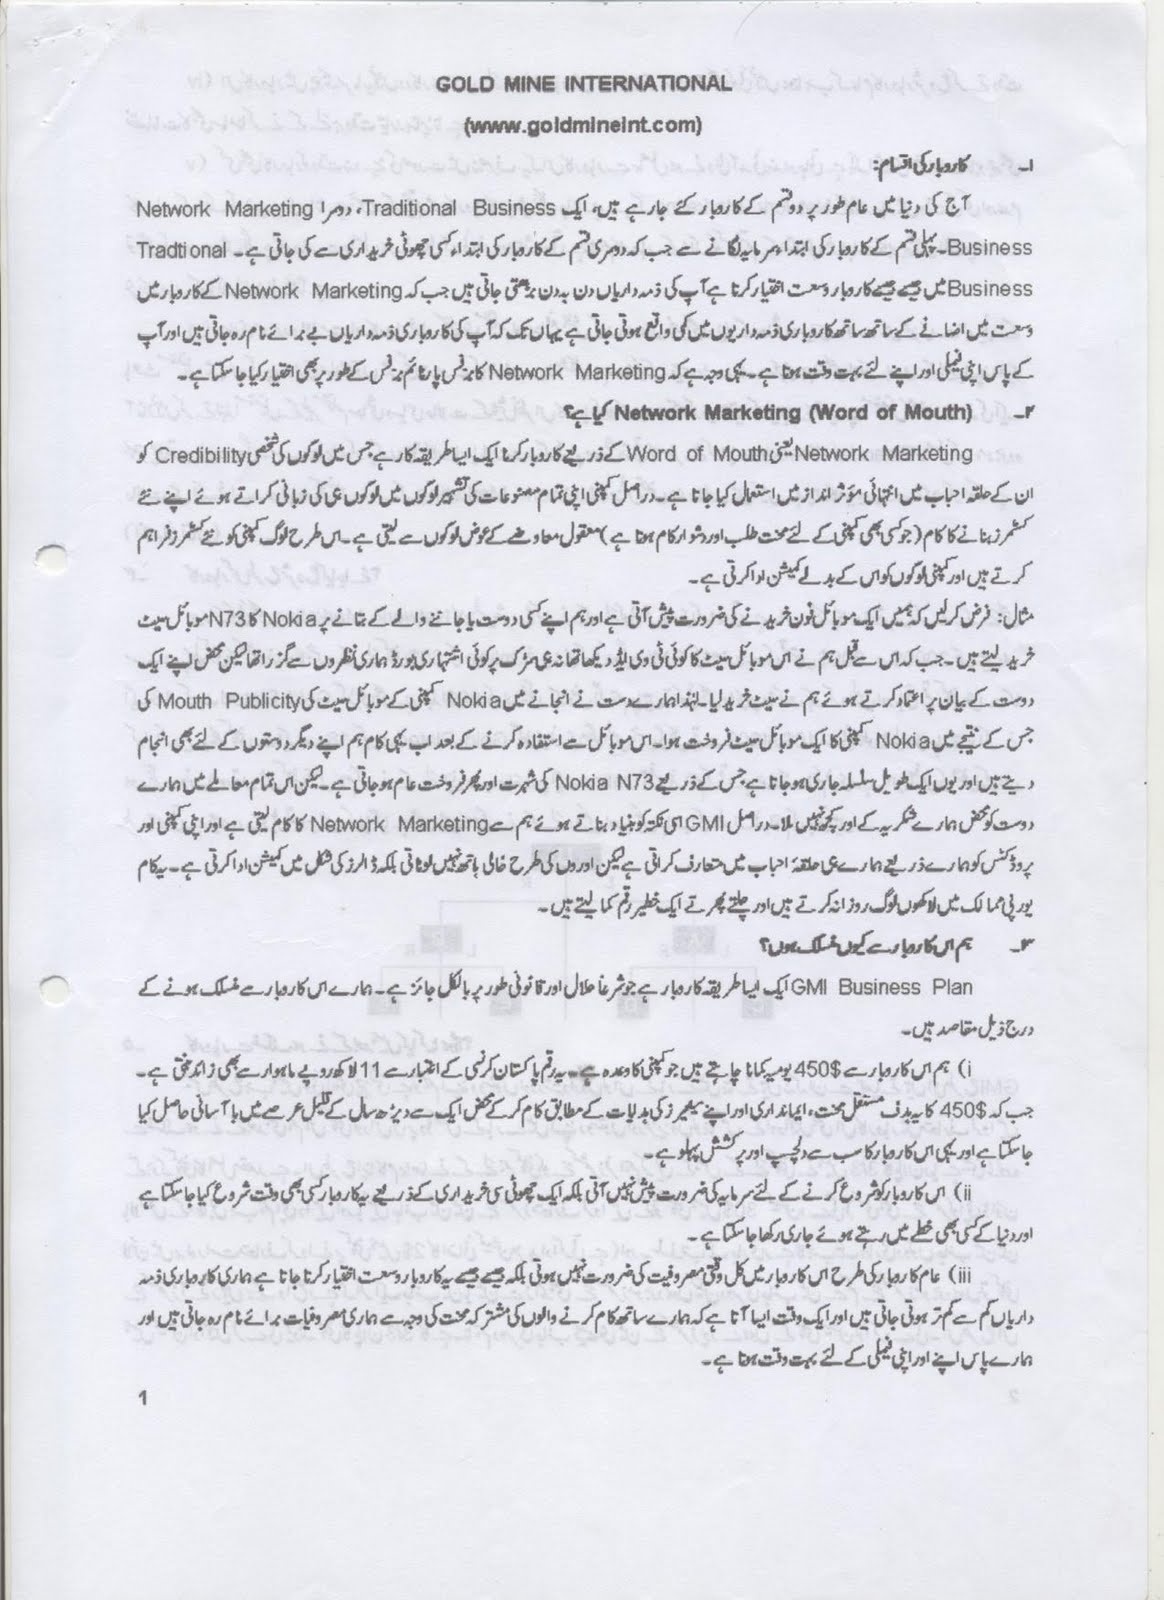 GOLD MINE INTERNATIONAL
(www.goldmineint.com)
۱۔ کاروبار کی اقسام:
آج کی دنیا میں عام طور پر دو قسم کے کاروبار کئے جا رہے ہیں، ایک Traditional Business، دوسرا Network Marketing
Business۔ پہلی قسم کے کاروبار کی ابتداء سرمایہ لگانے سے جب کہ دوسری قسم کے کاروبار کی ابتداء کسی چھوٹی خریداری سے کی جاتی ہے۔ Tradtional
Business میں جیسے جیسے کاروبار وسعت اختیار کرتا ہے آپ کی ذمہ داریاں دن بہ دن بڑھتی جاتی ہیں جب کہ Network Marketing کے کاروبار میں
وسعت میں اضافے کے ساتھ ساتھ کاروباری ذمہ داریوں میں کمی واقع ہوتی جاتی ہے یہاں تک کہ آپ کی کاروباری ذمہ داریاں بے برائے نام رہ جاتی ہیں اور آپ
کے پاس اپنی فیملی اور اپنے لئے بہت وقت ہوتا ہے۔ یہی وجہ ہے کہ Network Marketing کا بزنس پارٹ ٹائم بزنس کے طور پر بھی اختیار کیا جا سکتا ہے۔
۲۔ Network Marketing (Word of Mouth) کیا ہے؟
Network Marketing یعنی Word of Mouth کے ذریعے کاروبار کرنا ایک ایسا طریقہ کار ہے جس میں لوگوں کی شخصی Credibility کو
ان کے حلقہ احباب میں انتہائی مؤثر انداز میں استعمال کیا جاتا ہے۔ دراصل کمپنی اپنی تمام مصنوعات کی تشہیر لوگوں میں لوگوں ہی کی زبانی کراتے ہوئے اپنے نئے
کسٹمرز بنانے کا کام (جو کسی بھی کمپنی کے لئے محنت طلب اور دشوار کام ہوتا ہے) معقول معاوضے کے عوض لوگوں سے لیتی ہے۔ اس طرح لوگ کمپنی کو نئے کسٹمرز فراہم
کرتے ہیں اور کمپنی لوگوں کو اس کے بدلے کمیشن ادا کرتی ہے۔
مثال: فرض کر لیں کہ ہمیں ایک موبائل فون خریدنے کی ضرورت پیش آتی ہے اور ہم اپنے کسی دوست یا جاننے والے کے بتانے پر Nokia کا N73 موبائل سیٹ
خرید لیتے ہیں۔ جب کہ اس سے قبل ہم نے اس موبائل سیٹ کا کوئی ٹی وی ایڈ دیکھا تھا نہ ہی سڑک پر کوئی اشتہاری بورڈ ہماری نظروں سے گزرا تھا لیکن محض اپنے ایک
دوست کے بیان پر اعتماد کرتے ہوئے ہم نے سیٹ خرید لیا۔ لہٰذا ہمارے دست نے انجانے میں Nokia کمپنی کے موبائل سیٹ کی Mouth Publicity کی
جس کے نتیجے میں Nokia کمپنی کا ایک موبائل سیٹ فروخت ہوا۔ اس موبائل سے استفادہ کرنے کے بعد اب یہی کام ہم اپنے دیگر دوستوں کے لئے بھی انجام
دیتے ہیں اور یوں ایک طویل سلسلہ جاری ہو جاتا ہے جس کے ذریعے Nokia N73 کی شہرت اور پھر فروخت عام ہو جاتی ہے۔ لیکن اس تمام معاملے میں ہمارے
دوست کو محض ہمارے شکریہ کے اور کچھ نہیں ملا۔ دراصل GMI اسی نکتہ کو بنیاد بناتے ہوئے ہم سے Network Marketing کا کام لیتی ہے اور اپنی کمپنی اور
پروڈکٹس کو ہمارے ذریعے ہمارے ہی حلقۂ احباب میں متعارف کراتی ہے لیکن اوروں کی طرح خالی ہاتھ نہیں لوٹاتی بلکہ ڈالرز کی شکل میں کمیشن ادا کرتی ہے۔ یہ کام
یورپی ممالک میں لاکھوں لوگ روزانہ کرتے ہیں اور چلتے پھرتے ایک خطیر رقم کما لیتے ہیں۔
۳۔ ہم اس کاروبار سے کیوں منسلک ہوں؟
GMI Business Plan ایک ایسا طریقہ کاروبار ہے جو شرعاً حلال اور قانونی طور پر بالکل جائز ہے۔ ہمارے اس کاروبار سے منسلک ہونے کے
درج ذیل مقاصد ہیں۔
i) ہم اس کاروبار سے 450$ یومیہ کمانا چاہتے ہیں جو کمپنی کا وعدہ ہے۔ یہ رقم پاکستان کرنسی کے اعتبار سے 11 لاکھ روپے ماہوار سے بھی زائد بنتی ہے۔
جب کہ 450$ کا یہ ہدف مستقل محنت، ایمانداری اور اپنے سینیرز کی ہدایات کے مطابق کام کر کے محض ایک سے دیڑھ سال کے قلیل عرصے میں با آسانی حاصل کیا
جا سکتا ہے اور یہی اس کاروبار کا سب سے دلچسپ اور پر کشش پہلو ہے۔
ii) اس کاروبار کو شروع کرنے کے لئے سرمایہ کی ضرورت پیش نہیں آتی بلکہ ایک چھوٹی سی خریداری کے ذریعے یہ کاروبار کسی بھی وقت شروع کیا جا سکتا ہے
اور دنیا کے کسی بھی خطے میں رہتے ہوئے جاری رکھا جا سکتا ہے۔
iii) عام کاروبار کی طرح اس کاروبار میں کل وقتی مصروفیت کی ضرورت نہیں ہوتی بلکہ جیسے جیسے یہ کاروبار وسعت اختیار کرتا جاتا ہے ہماری کاروباری ذمہ
داریاں کم سے کم تر ہوتی جاتی ہیں اور ایک وقت ایسا آتا ہے کہ ہمارے ساتھ کام کرنے والوں کی مشترکہ محنت کی وجہ سے ہماری مصروفیات برائے نام رہ جاتی ہیں اور
ہمارے پاس اپنے اور اپنی فیملی کے لئے بہت وقت ہوتا ہے۔
1